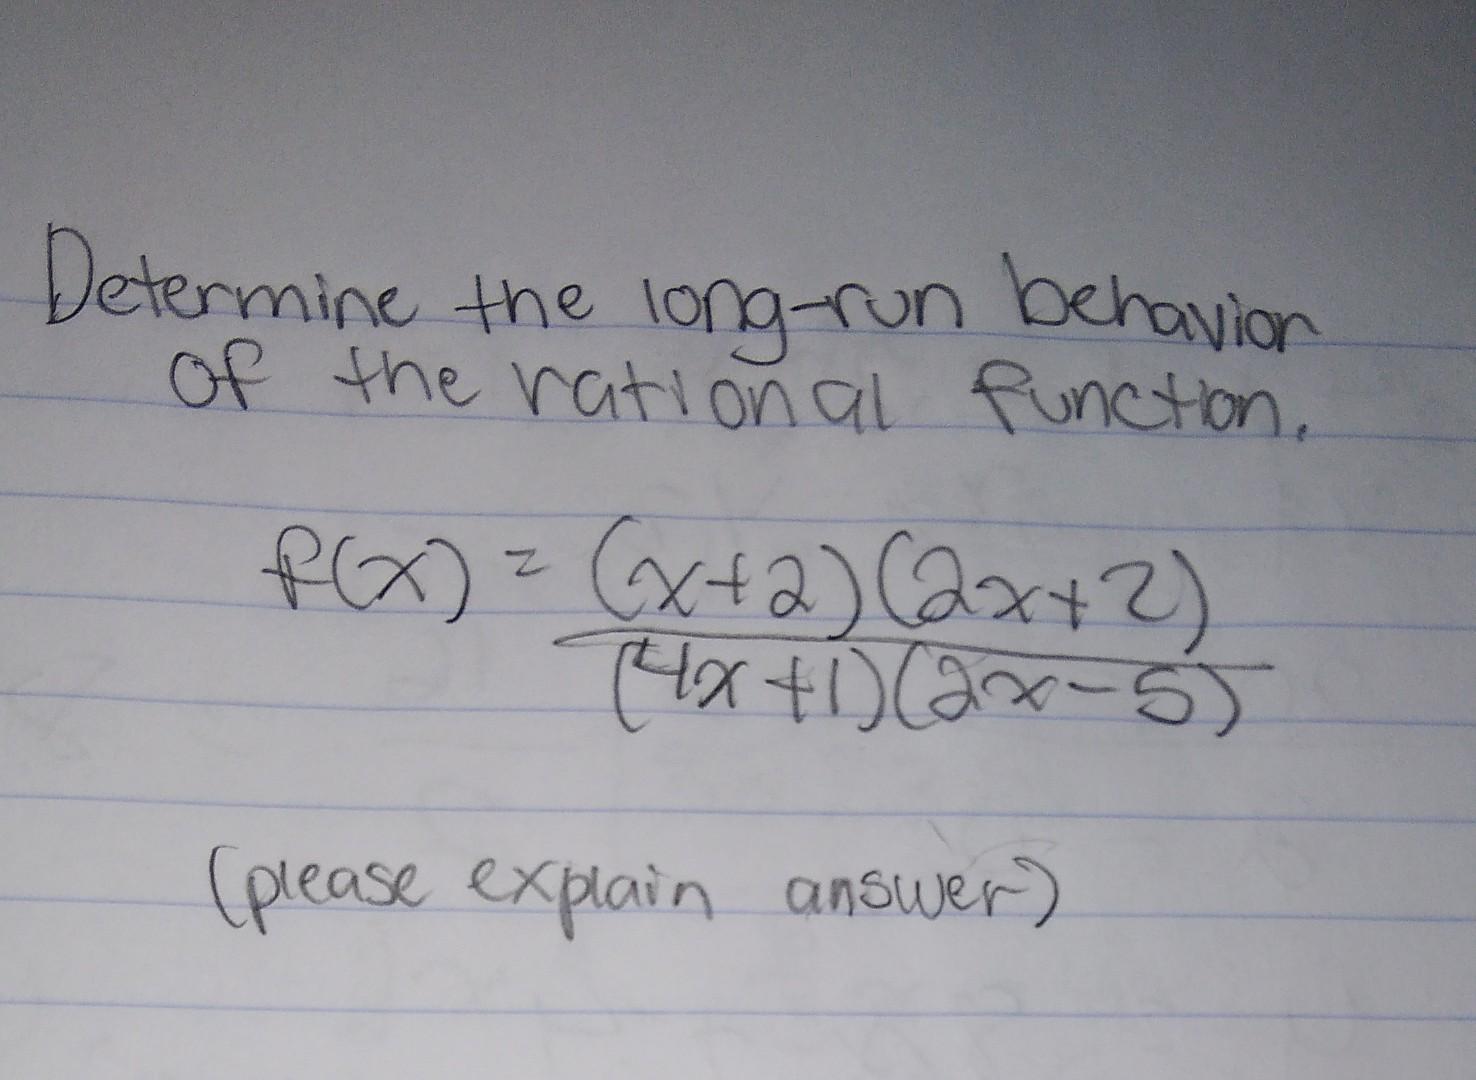 Determine the long-run behavior
of the rational function.
f(x) = (x+2)(2x+2)
(4x+1)(2x-5)
(please explain answer)